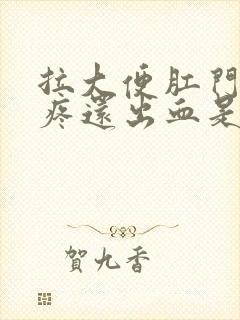 拉大便肛門
疼還出血是
賀九香